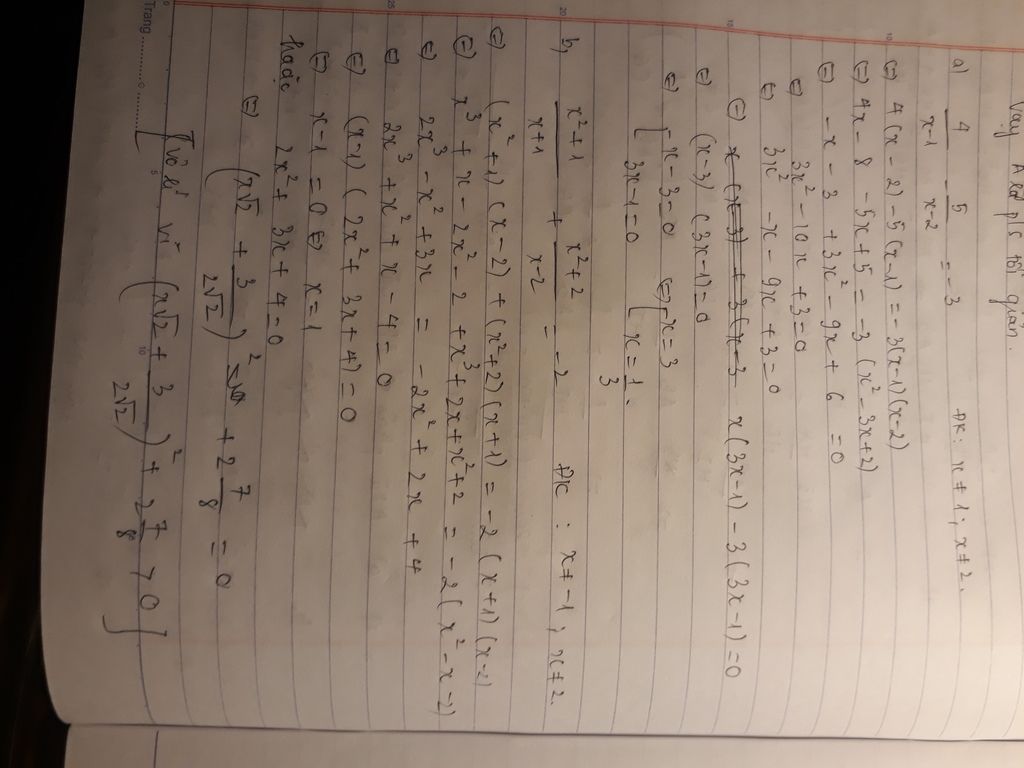 Vậy A ko p/s tối giản.
a) 4/(x-1) - 5/(x-2) = -3 ĐK: x ≠ 1; x ≠ 2.
⇔ 4(x-2) - 5(x-1) = -3(x-1)(x-2)
⇔ 4x - 8 - 5x + 5 = -3(x² - 3x + 2)
⇔ -x - 3 + 3x² - 9x + 6 = 0
⇔ 3x² - 10x + 3 = 0
⇔ 3x² - x - 9x + 3 = 0
⇔ x(3x-1) - 3(3x-1) = 0
⇔ (x-3)(3x-1) = 0
⇔ [ x-3=0 ⇔ [ x=3
3x-1=0 x=1/3.
b) (x²+1)/(x+1) + (x²+2)/(x-2) = -2 ĐK: x ≠ -1; x ≠ 2.
⇔ (x²+1)(x-2) + (x²+2)(x+1) = -2(x+1)(x-2)
⇔ x³ + x - 2x² - 2 + x³ + 2x + x² + 2 = -2(x² - x - 2)
⇔ 2x³ - x² + 3x = -2x² + 2x + 4
⇔ 2x³ + x² + x - 4 = 0
⇔ (x-1)(2x² + 3x + 4) = 0
⇔ x-1 = 0 ⇔ x = 1
hoặc 2x² + 3x + 4 = 0
⇔ (x√2 + 3/(2√2))² + 2 7/8 = 0
[Vô lí vì (x√2 + 3/(2√2))² + 2 7/8 > 0]
Trang
10
15
20
25
0
5
10